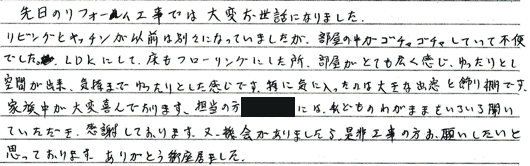 先日のリフォーム工事では大変お世話になりました。
リビングとキッチンが以前は別々になっていましたが、部屋の中がゴチャゴチャしていて不便
でした。LDKにして、床もフローリングにした所、部屋がとても広く感じ、ゆったりとし
空間が出来、気持までゆったりとした感じです。特に気に入ったのは大きな出窓と飾り棚です。
家族中が大変喜んでおります。担当の方には、私どものわがままもいろいろ聞い
ていただき、感謝しております。又、機会がありましたら、是非工事の方お願いしたいと
思っております。ありがとう御座居ました。